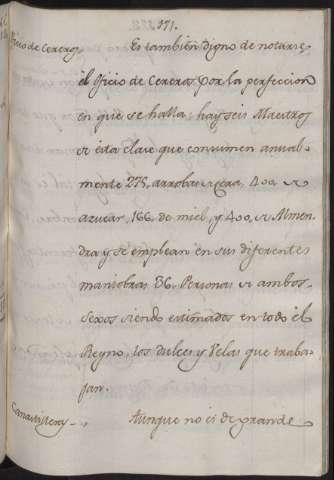 171.
Oficio de Cereros Es tambien digno de notarse,
el Oficio de Cereros por la perfeccion
en que se halla; hay seis Maestros
de esta clase que consumen anual-
mente 275 arrobas de cera, 400 de
azucar, 166 de miel, y 400 de Almen-
dra y se emplean en sus diferentes
maniobras 36 Personas de ambos-
sexos siendo estimados en todo el
Reyno, los dulces y Velas que traba-
jan.
Aunque no es de grande